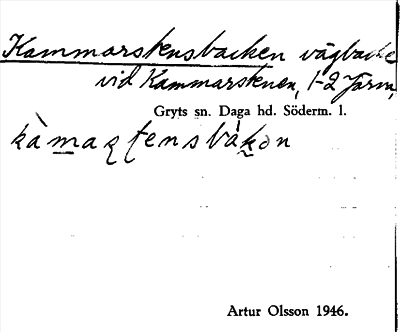 Kammarstensbacken vägbacke
vid Kammarstenen, 1-2 Järn,
Gryts sn. Daga hd. Söderm. l.
Artur Olsson 1946.